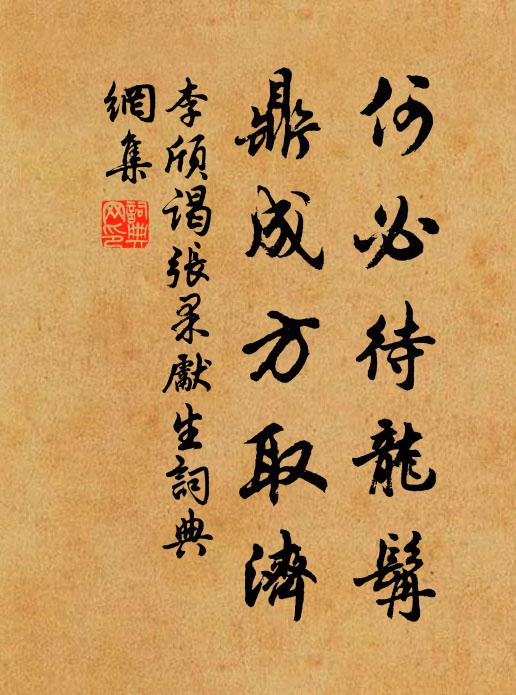 何必待龍髯
鼎成方取濟
李頎謁張果獻生詞典
網集
詞典
网印